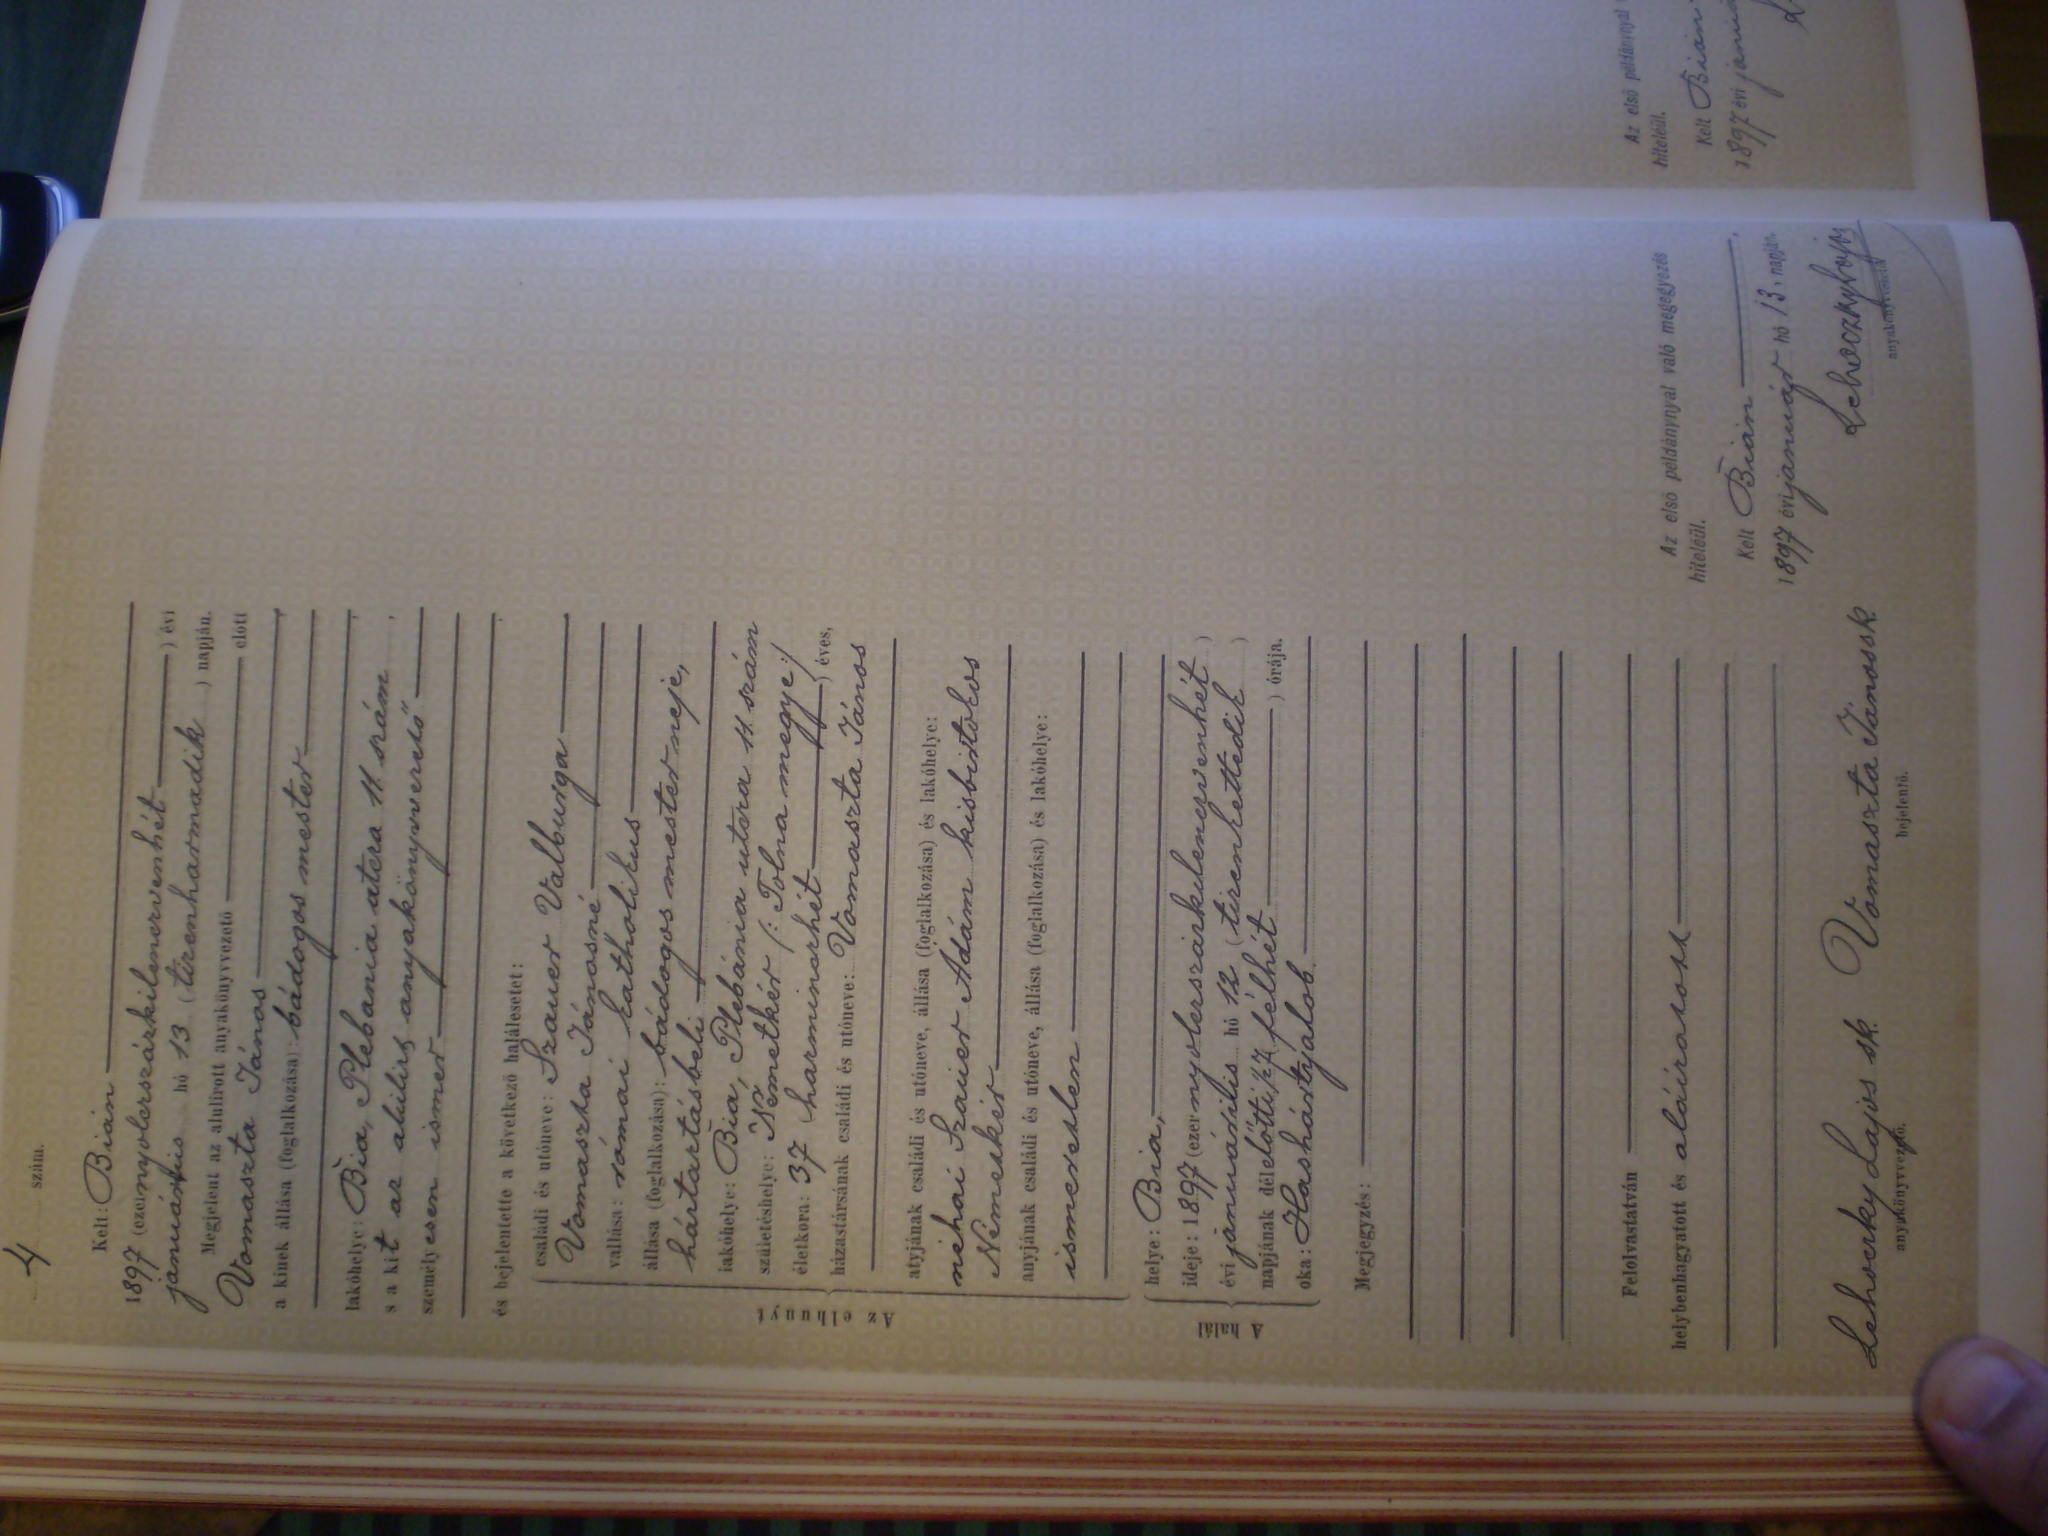 4 szám.
Kelt: Bián
1897 (ezernyolcszázkilencvenhét) évi
január hó 13 (tizenharmadik) napján.
Megjelent az alulirott anyakönyvvezető előtt
Vomaszta János
a kinek állása (foglalkozása): bádogos mester
lakóhelye: Bia, Plebania utcza 11. szám,
s a kit az alulirt anyakönyvvezető
személyesen ismer
és bejelentette a következő halálesetet:
Az elhunyt
családi és utóneve: Szauer Valburga
Vomaszta Jánosné
vallása: római katholikus
állása (foglalkozása): bádogos mester neje,
háztartásbeli
lakóhelye: Bia, Plebánia utcza 11. szám
születéshelye: Németkér (: Tolna megye :)
életkora: 37 (harminczhét) éves,
házastársának családi és utóneve: Vomaszta János
atyjának családi és utóneve, állása (foglalkozása) és lakóhelye:
néhai Szauer Ádám kisbirtokos
Németkér
anyjának családi és utóneve, állása (foglalkozása) és lakóhelye:
ismeretlen
A halál
helye: Bia,
ideje: 1897 (ezernyolczszázkilenczvenhét)
évi január hó 12 (tizenkettedik)
napjának délelőtti 1/2 7 (félhét) órája.
oka: Hashártyalob
Megjegyzés:
Felolvastatván
helybenhagyatott és aláíratott
Lehoczky Lajos sk. Vomaszta János sk
anyakönyvvezető. bejelentő.
Az első példánynyal való megegyezés
hiteléül.
Kelt Bián,
1897 évi január hó 13. napján.
Lehoczky Lajos
anyakönyvvezető
Az első példánynyal
hiteléül.
Kelt Bián
1897 évi január